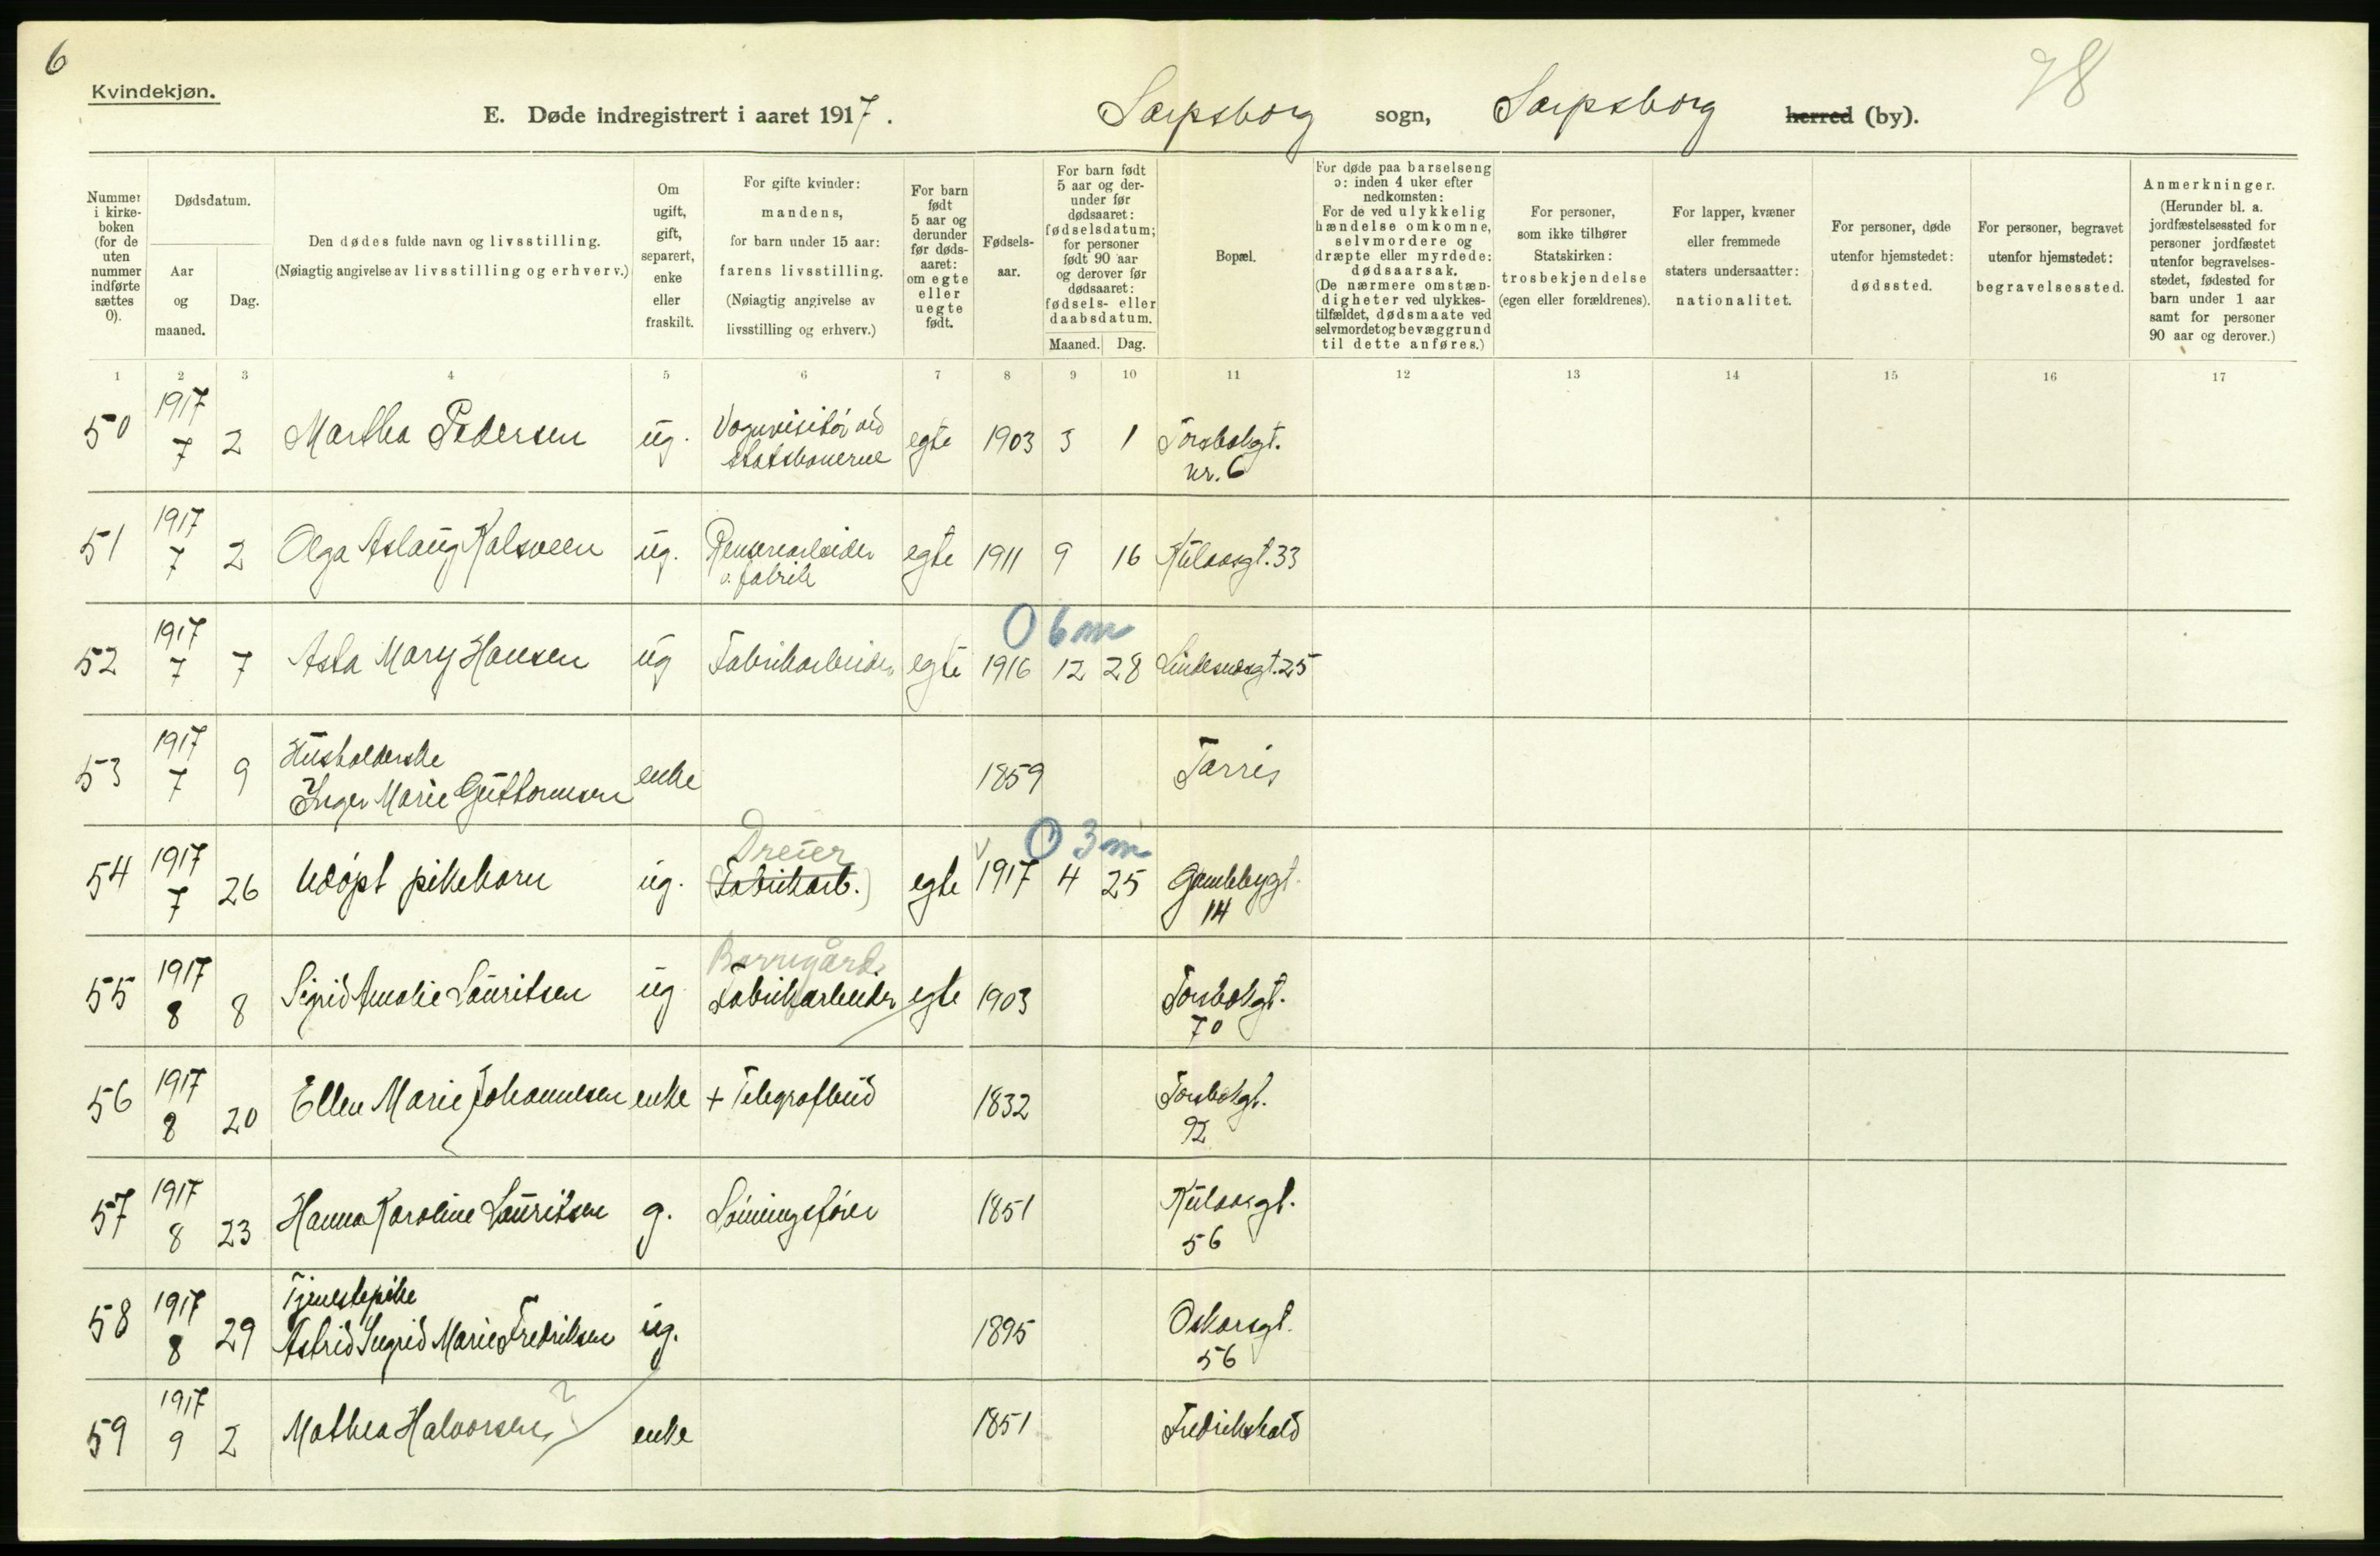 6
Kvindekjøn.
E. Døde indregistrert i aaret 1917. Sarpsborg sogn, Sarpsborg herred (by).
78
Nummer i kirkeboken (for de uten nummer indførte sættes 0).
Dødsdatum.
Aar og maaned.
Dag.
Den dødes fulde navn og livsstilling.
(Nøiagtig angivelse av livsstilling og erhverv.)
Om ugift, gift, separert, enke eller fraskilt.
For gifte kvinder: mandens, for barn under 15 aar: farens livsstilling. (Nøiagtig angivelse av livsstilling og erhverv.)
For barn født 5 aar og derunder før dødsaaret: om egte eller uegte født.
Fødselsaar.
For barn født 5 aar og derunder før dødsaaret: fødselsdatum; for personer født 90 aar og derover før dødsaaret: fødsels- eller daabsdatum.
Maaned. Dag.
Bopæl.
For døde paa barselseng ɔ: inden 4 uker efter nedkomsten: For de ved ulykkelig hændelse omkomne, selvmordere og dræpte eller myrdede: dødsaarsak. (De nærmere omstændigheter ved ulykkestilfældet, dødsmaate ved selvmordet og bevæggrund til dette anføres.)
For personer, som ikke tilhører Statskirken: trosbekjendelse (egen eller forældrenes).
For lapper, kvæner eller fremmede staters undersaatter: nationalitet.
For personer, døde utenfor hjemstedet: dødssted.
For personer, begravet utenfor hjemstedet: begravelsessted.
Anmerkninger. (Herunder bl. a. jordfæstelsessted for personer jordfæstet utenfor begravelsesstedet, fødested for barn under 1 aar samt for personer 90 aar og derover.)
1 2 3 4 5 6 7 8 9 10 11 12 13 14 15 16 17
50 1917 7 2 Martha Pedersen ug. Vognvisitør ved statsbanerne egte 1903 3 1 Torsbekgt. nr. 6
51 1917 7 2 Olga Aslaug Kalsveen ug. Renseriarbeider v. fabrik egte 1911 9 16 Kulaasgt. 33
0 6 m
52 1917 7 7 Asta Mary Hansen ug Fabrikarbeider egte 1916 12 28 Lindesnæsgt. 25
53 1917 7 9 Husholderske Inger Marie Guttormsen enke 1859 Tarris
Dreier
0 3 m
54 1917 7 26 Udøpt pikebarn ug. (Fabrikarb.) egte 1917 4 25 Gamlebygt. 14
Borregård
55 1917 8 8 Sigrid Amalie Lauritsen ug Fabrikarbeider egte 1903 Torsbekgt. 70
56 1917 8 20 Ellen Marie Johannesen enke + Telegrafbud 1832 Torsbekgt. 92
57 1917 8 23 Hanna Karoline Lauritsen g. Lønningsfører 1851 Kulaasgt. 56
58 1917 8 29 Tjenestepike Astrid Ingrid Marie Fredriksen ug. 1895 Oskarsgt. 56
59 1917 9 2 Mathea Halvorsen ? enke 1851 Fredrikshald